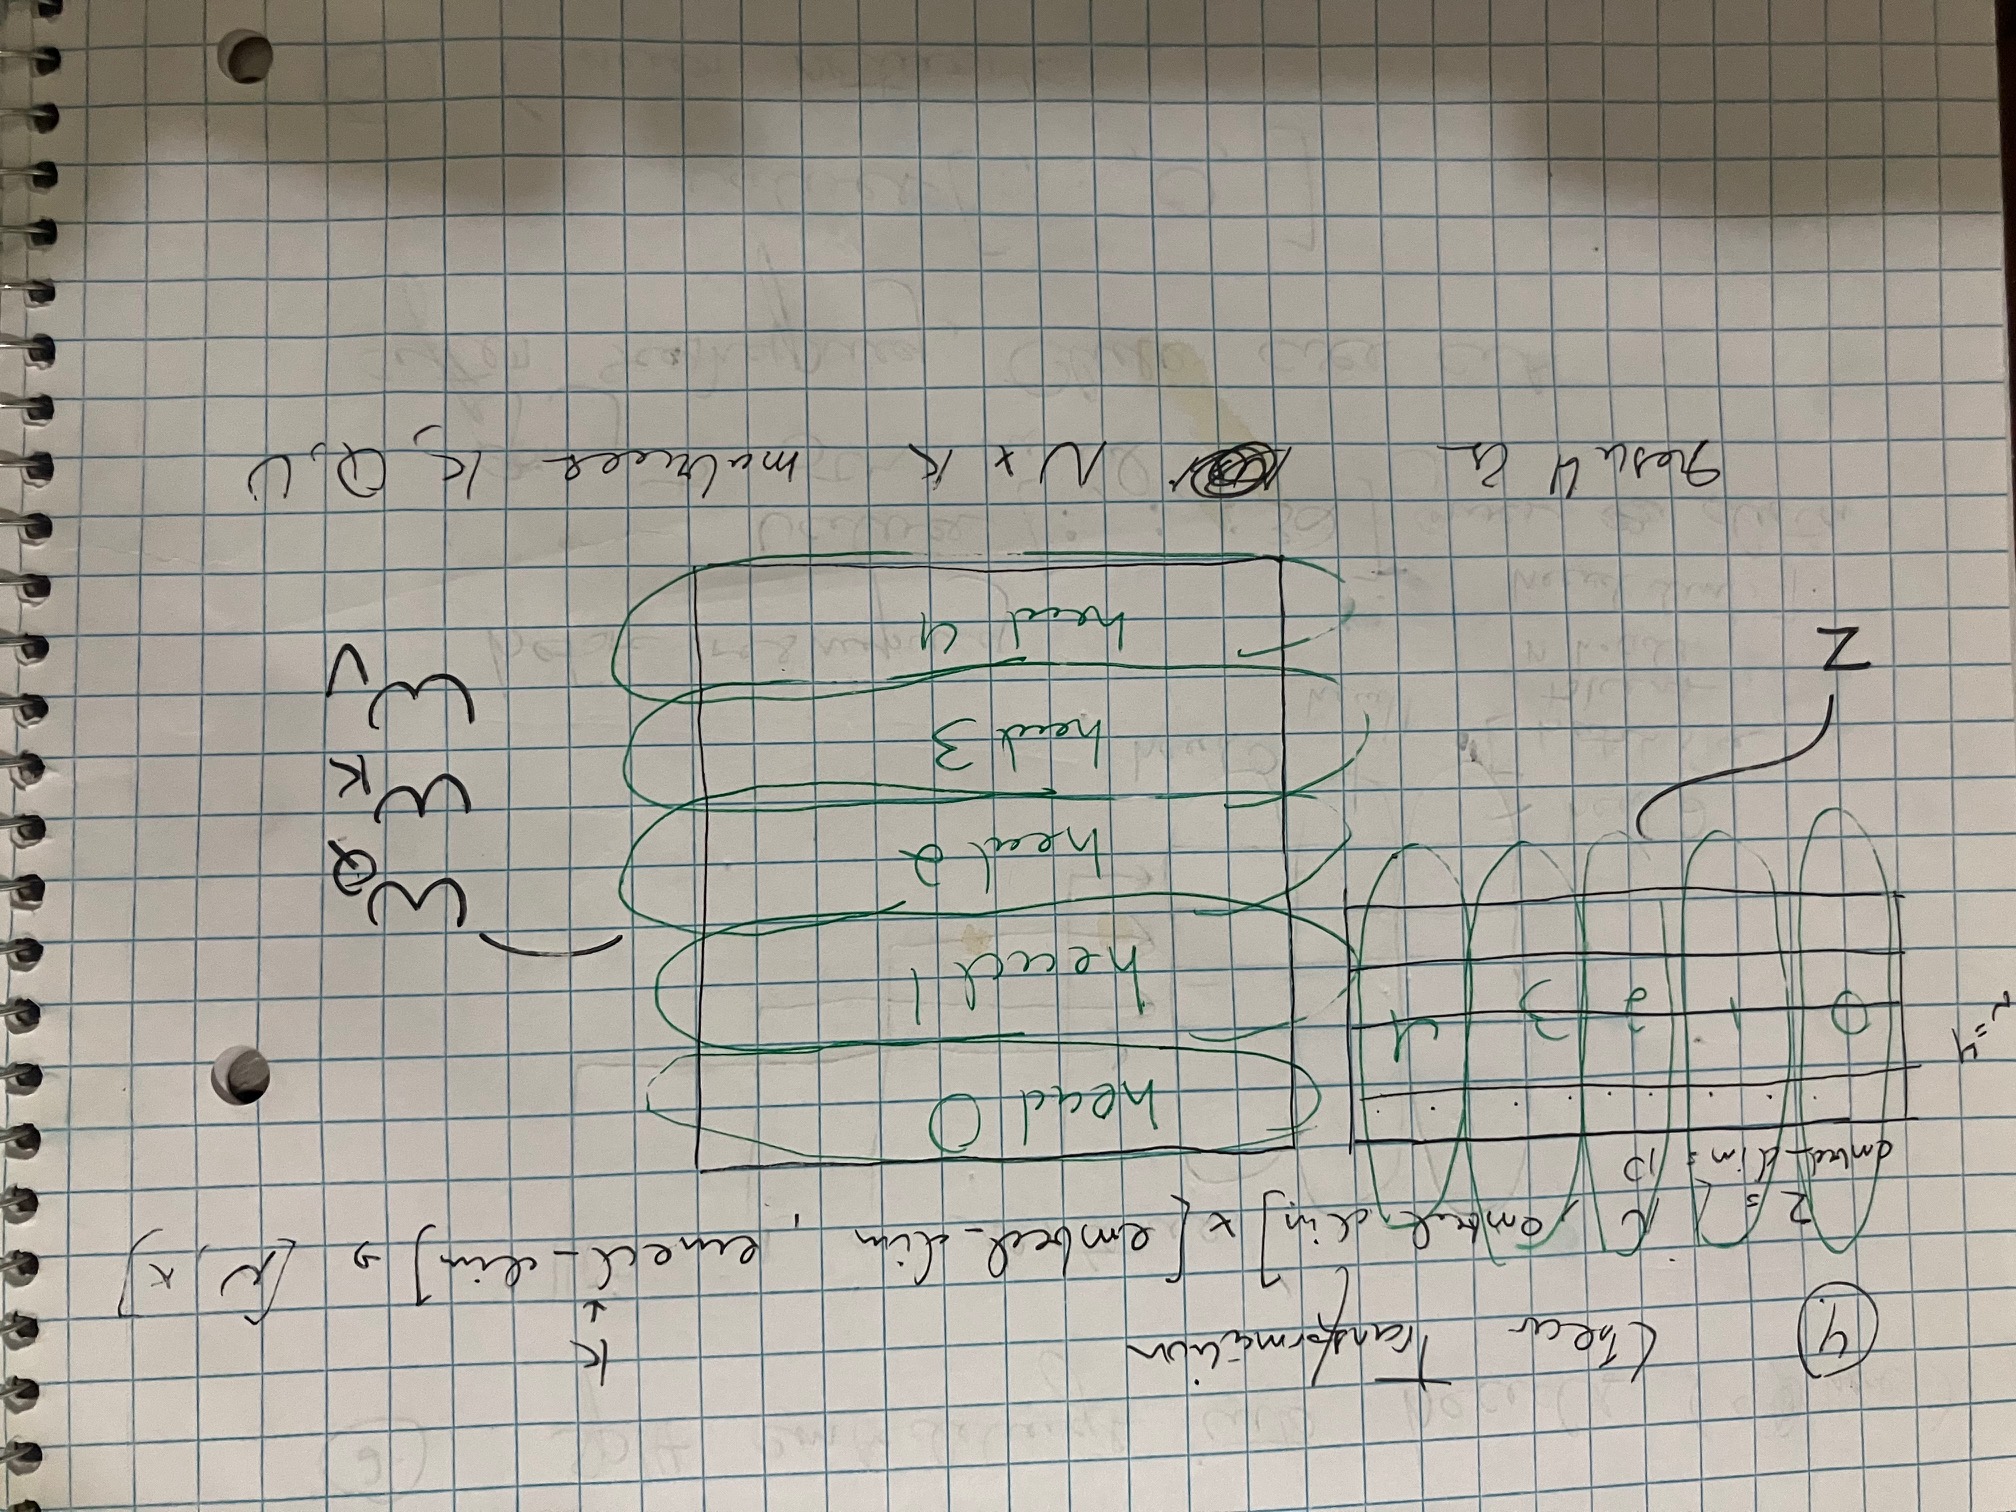 4.
Linear Transformation
K
↓
Z = [N, embed_dim] x [embed_dim, embed_dim] → [N, K]
embed_dim = 10
N=4
0 1 2 3 4
head 0
head 1
head 2
head 3
head 4
W^Q
W^K
W^V
Z
Result is N x K matrices K, Q, V